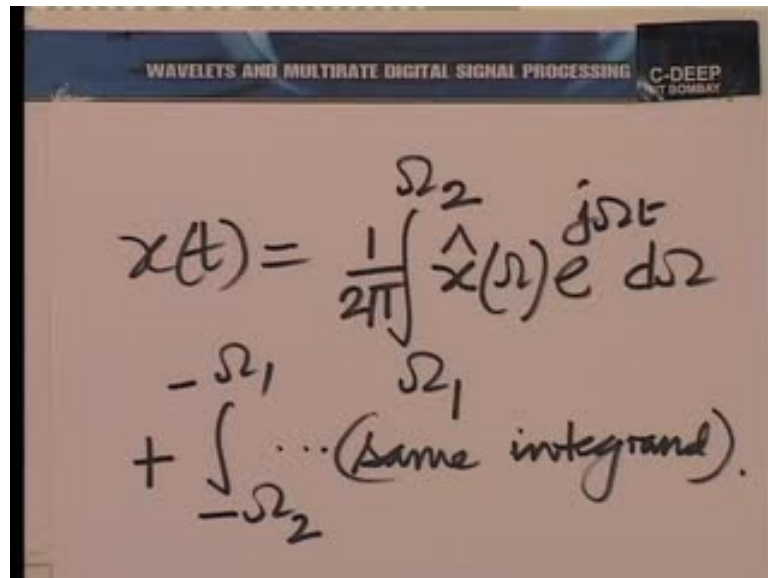 WAVELETS AND MULTIRATE DIGITAL SIGNAL PROCESSING
C-DEEP
IIT BOMBAY
x(t) = 1/2π ∫_{Ω₁}^{Ω₂} x̂(Ω) e^{jΩt} dΩ
+ ∫_{-Ω₂}^{-Ω₁} ...(same integrand).